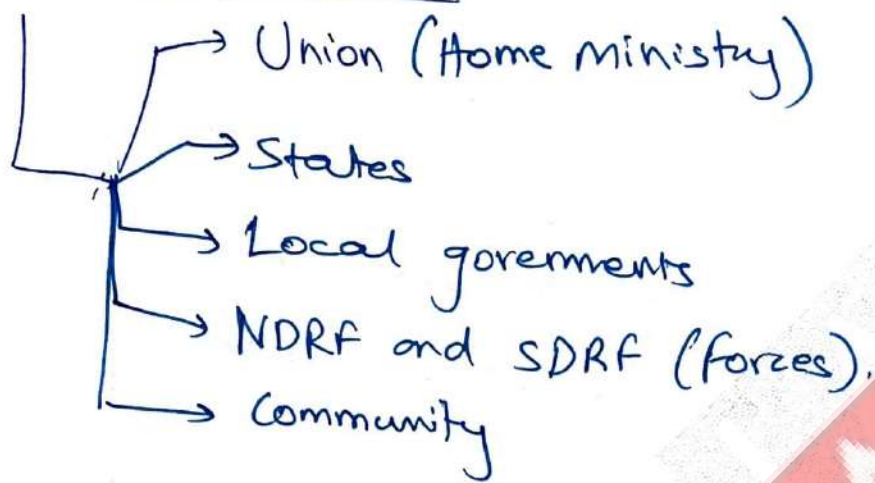 Union (Home Ministry)
States
Local goverments
NDRF and SDRF (forces).
Community